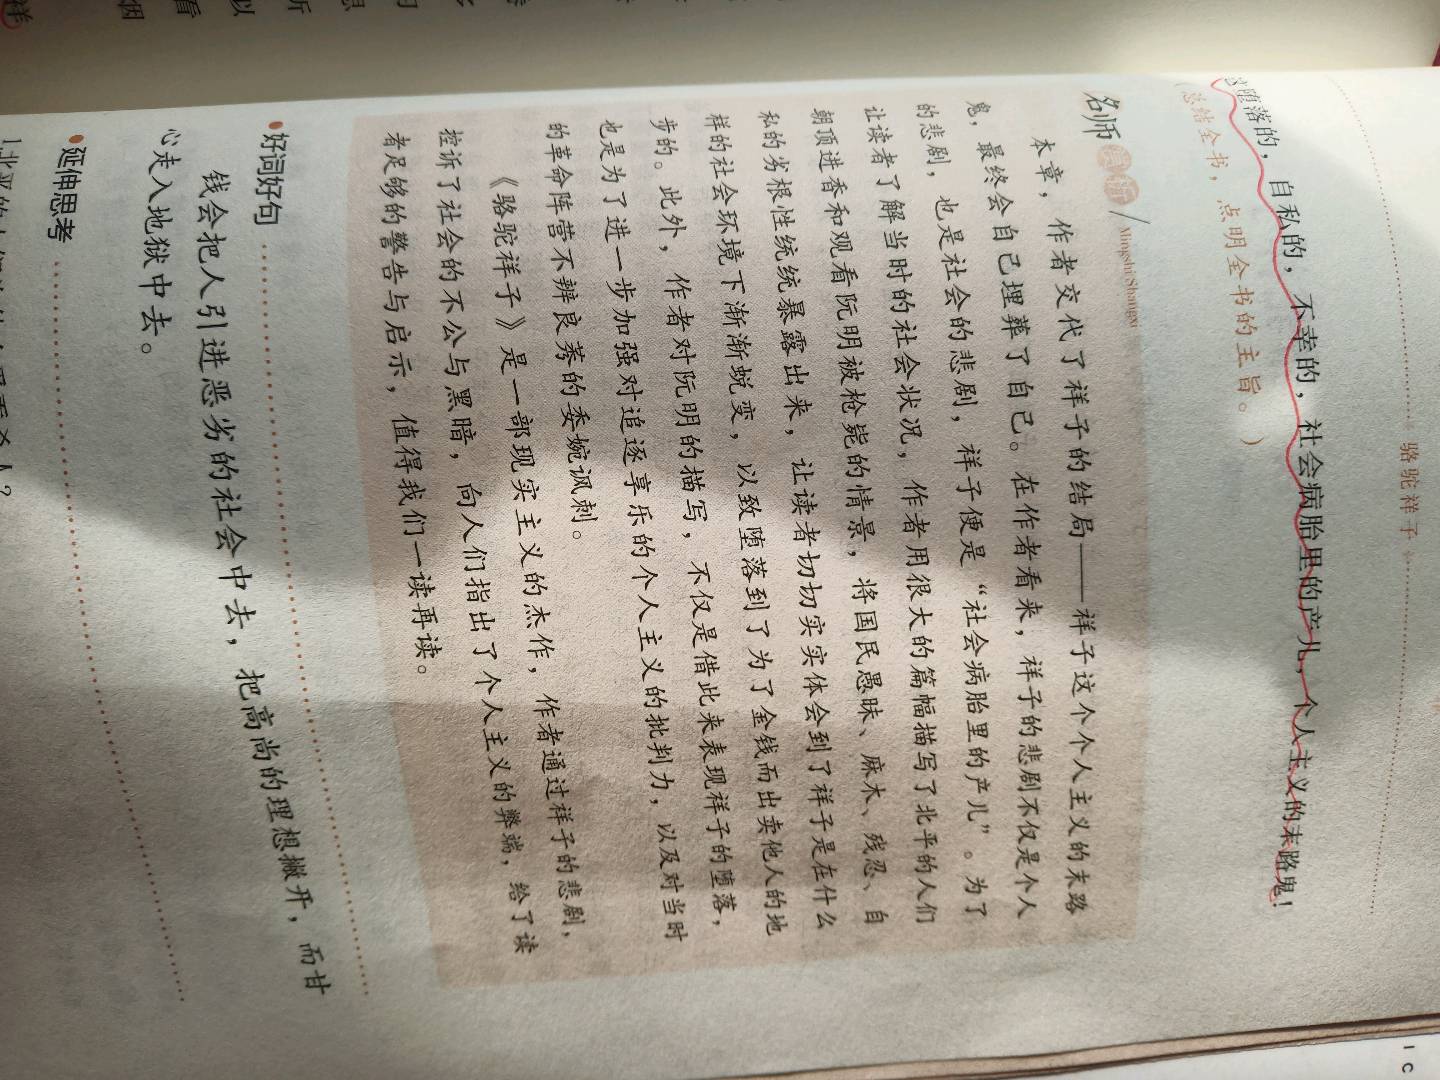 骆驼祥子
堕落的，自私的，不幸的，社会病胎里的产儿，个人主义的末路鬼！
（总结全书，点明全书的主旨。）
名师赏析 Mingshi Shangxi
本章，作者交代了祥子的结局——祥子这个个人主义的末路
鬼，最终会自己埋葬了自己。在作者看来，祥子的悲剧不仅是个人
的悲剧，也是社会的悲剧，祥子便是“社会病胎里的产儿”。为了
让读者了解当时的社会状况，作者用很大的篇幅描写了北平的人们
朝顶进香和观看阮明被枪毙的情景，将国民愚昧、麻木、残忍、自
私的劣根性统统暴露出来，让读者切切实实体会到了祥子是在什么
样的社会环境下渐渐蜕变，以致堕落到了为了金钱而出卖他人的地
步的。此外，作者对阮明的描写，不仅是借此来表现祥子的堕落，
也是为了进一步加强对追逐享乐的个人主义的批判力，以及对当时
的革命阵营不辨良莠的委婉讽刺。
《骆驼祥子》是一部现实主义的杰作，作者通过祥子的悲剧，
控诉了社会的不公与黑暗，向人们指出了个人主义的弊端，给了读
者足够的警告与启示，值得我们一读再读。
好词好句
钱会把人引进恶劣的社会中去，把高尚的理想撇开，而甘
心走入地狱中去。
延伸思考